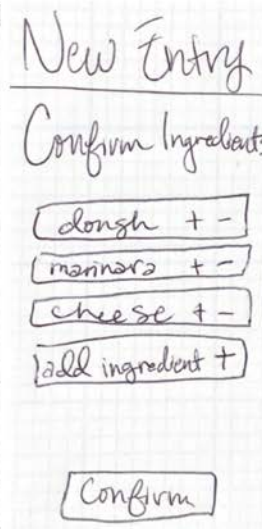 New Entry
Confirm Ingredients
dough + -
marinara + -
cheese + -
add ingredient +
Confirm